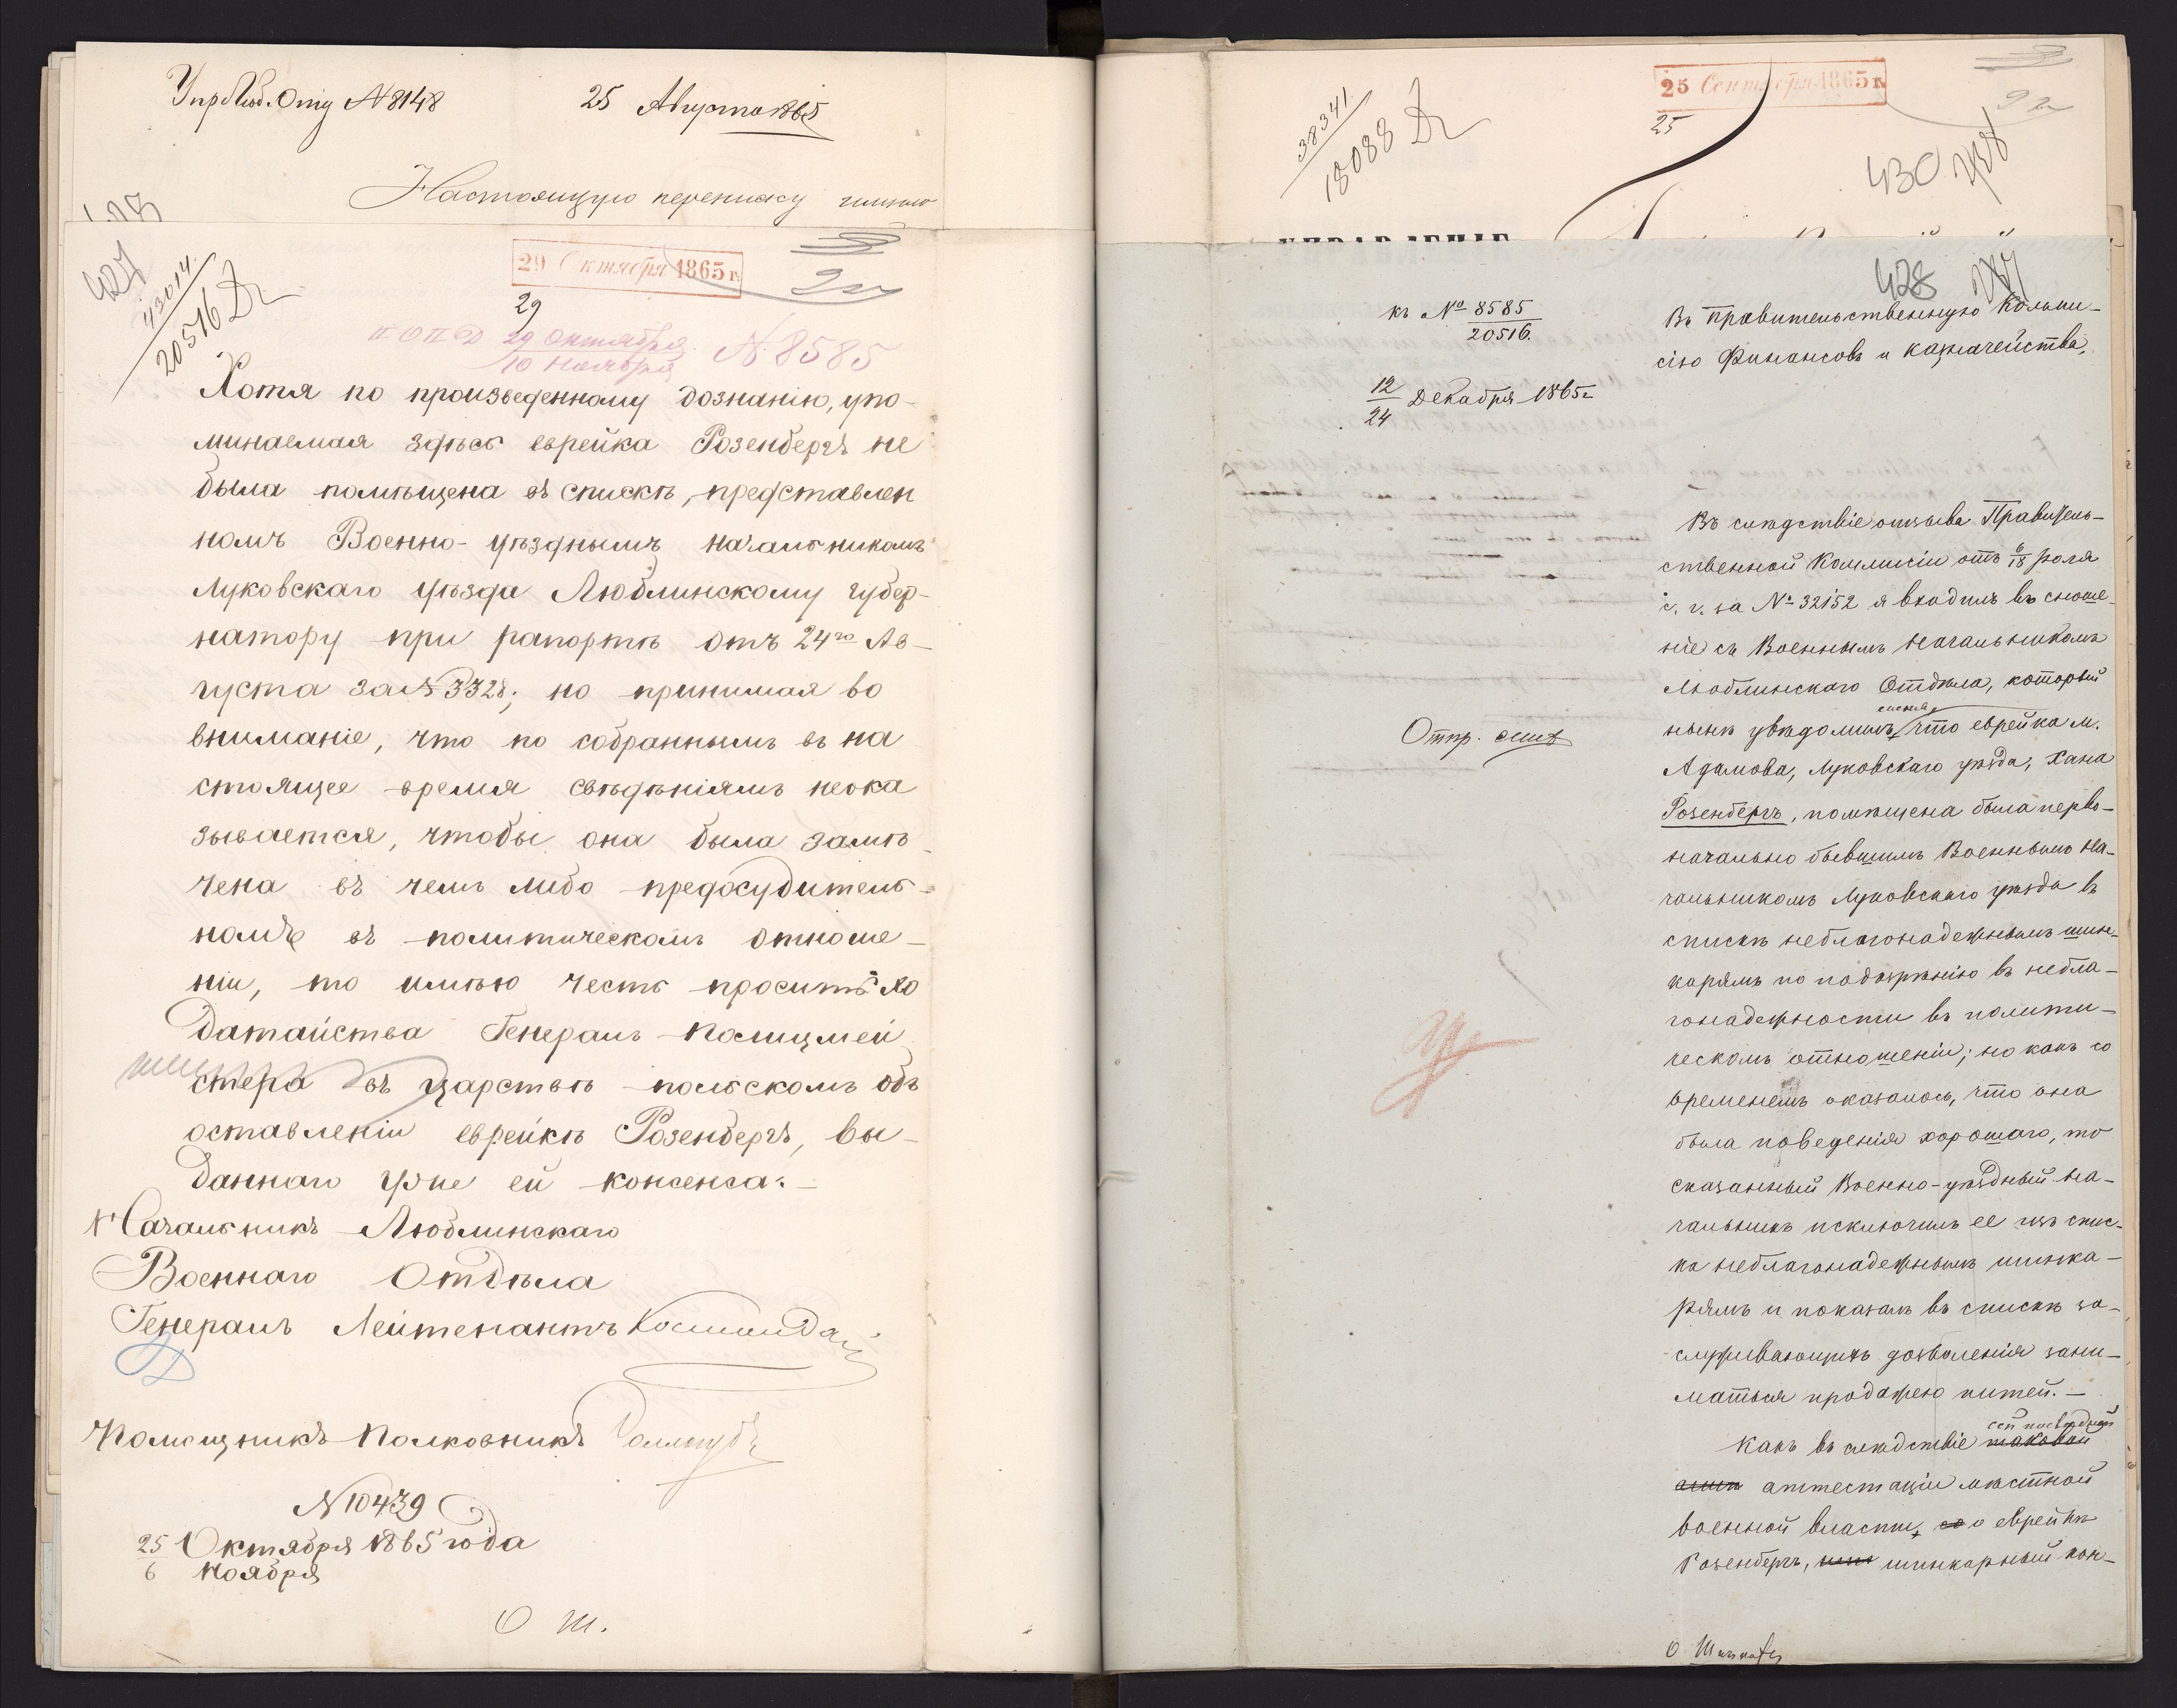 Упр Люб. Отд № 8148 25 Августа 1865
Настоящую переписку
427
43014
20516
29 Октября 1865 г.
29
ПОПД 29 Октября № 8585
10 Ноября
Хотя по произведенному дознанію, упо-
минаемая здѣсь еврейка Розенбергъ не
была помѣщена въ спискѣ, представлен
номъ Военно-уѣзднымъ начальникомъ
Луковскаго уѣзда Люблинскому губер-
натору при рапортѣ отъ 24го Ав-
густа за № 3328; но принимая во
вниманіе, что по собраннымъ въ на
стоящее время свѣдѣніямъ неока
зывается, чтобы она была замѣ-
чена въ чемъ либо предосудитель-
номъ въ политическомъ отноше-
ніи, то имѣю честь просить хо
датайства Генералъ-Полицмей
стера въ Царствѣ Польскомъ объ
оставленіи еврейкѣ Розенбергъ, вы-
даннаго уже ей консенса.-
Начальникъ Люблинскаго
Военнаго Отдѣла
Генералъ Лейтенантъ
Помощникъ Полковникъ
№ 10439
25 Октября 1865 года
6 Ноября
О Ш.
25 Сентября 1865 г.
25
38341
18088
430
УПРАВЛЕНІЕ
428
къ № 8585
20516.
Въ Правительственную Комми-
сію Финансовъ и Казначейства,
12
24 Декабря 1865 г.
Въ слѣдствіе отзыва Правитель-
ственной Коммисіи отъ 6/18 
с. г. за № 32152 я входилъ въ сноше-
ніе съ Военнымъ Начальникомъ
Люблинскаго Отдѣла, который
нынѣ увѣдомилъ, что еврейка м.
Отпр.
Адамова, Луковскаго уѣзда, Хана
Розенбергъ, помѣщена была перво-
начально бывшимъ Военнымъ На-
чальникомъ Луковскаго уѣзда въ
спискѣ неблагонадежнымъ шин-
карямъ по подозрѣнію въ небла-
гонадежности въ полити-
ческомъ отношеніи; но какъ со
временемъ оказалось, что она
была поведенія хорошаго, то
сказанный Военно-уѣздный На-
чальникъ исключилъ ее изъ спис-
ка неблагонадежнымъ шинка-
рямъ и показалъ въ спискѣ за-
служивающихъ дозволенія зани-
маться продажею питей.-
сей послѣдней
Какъ въ слѣдствіе таковой
аттестаціи мѣстной
военной власти, о еврейкѣ
Розенбергъ, шинкарный кон-